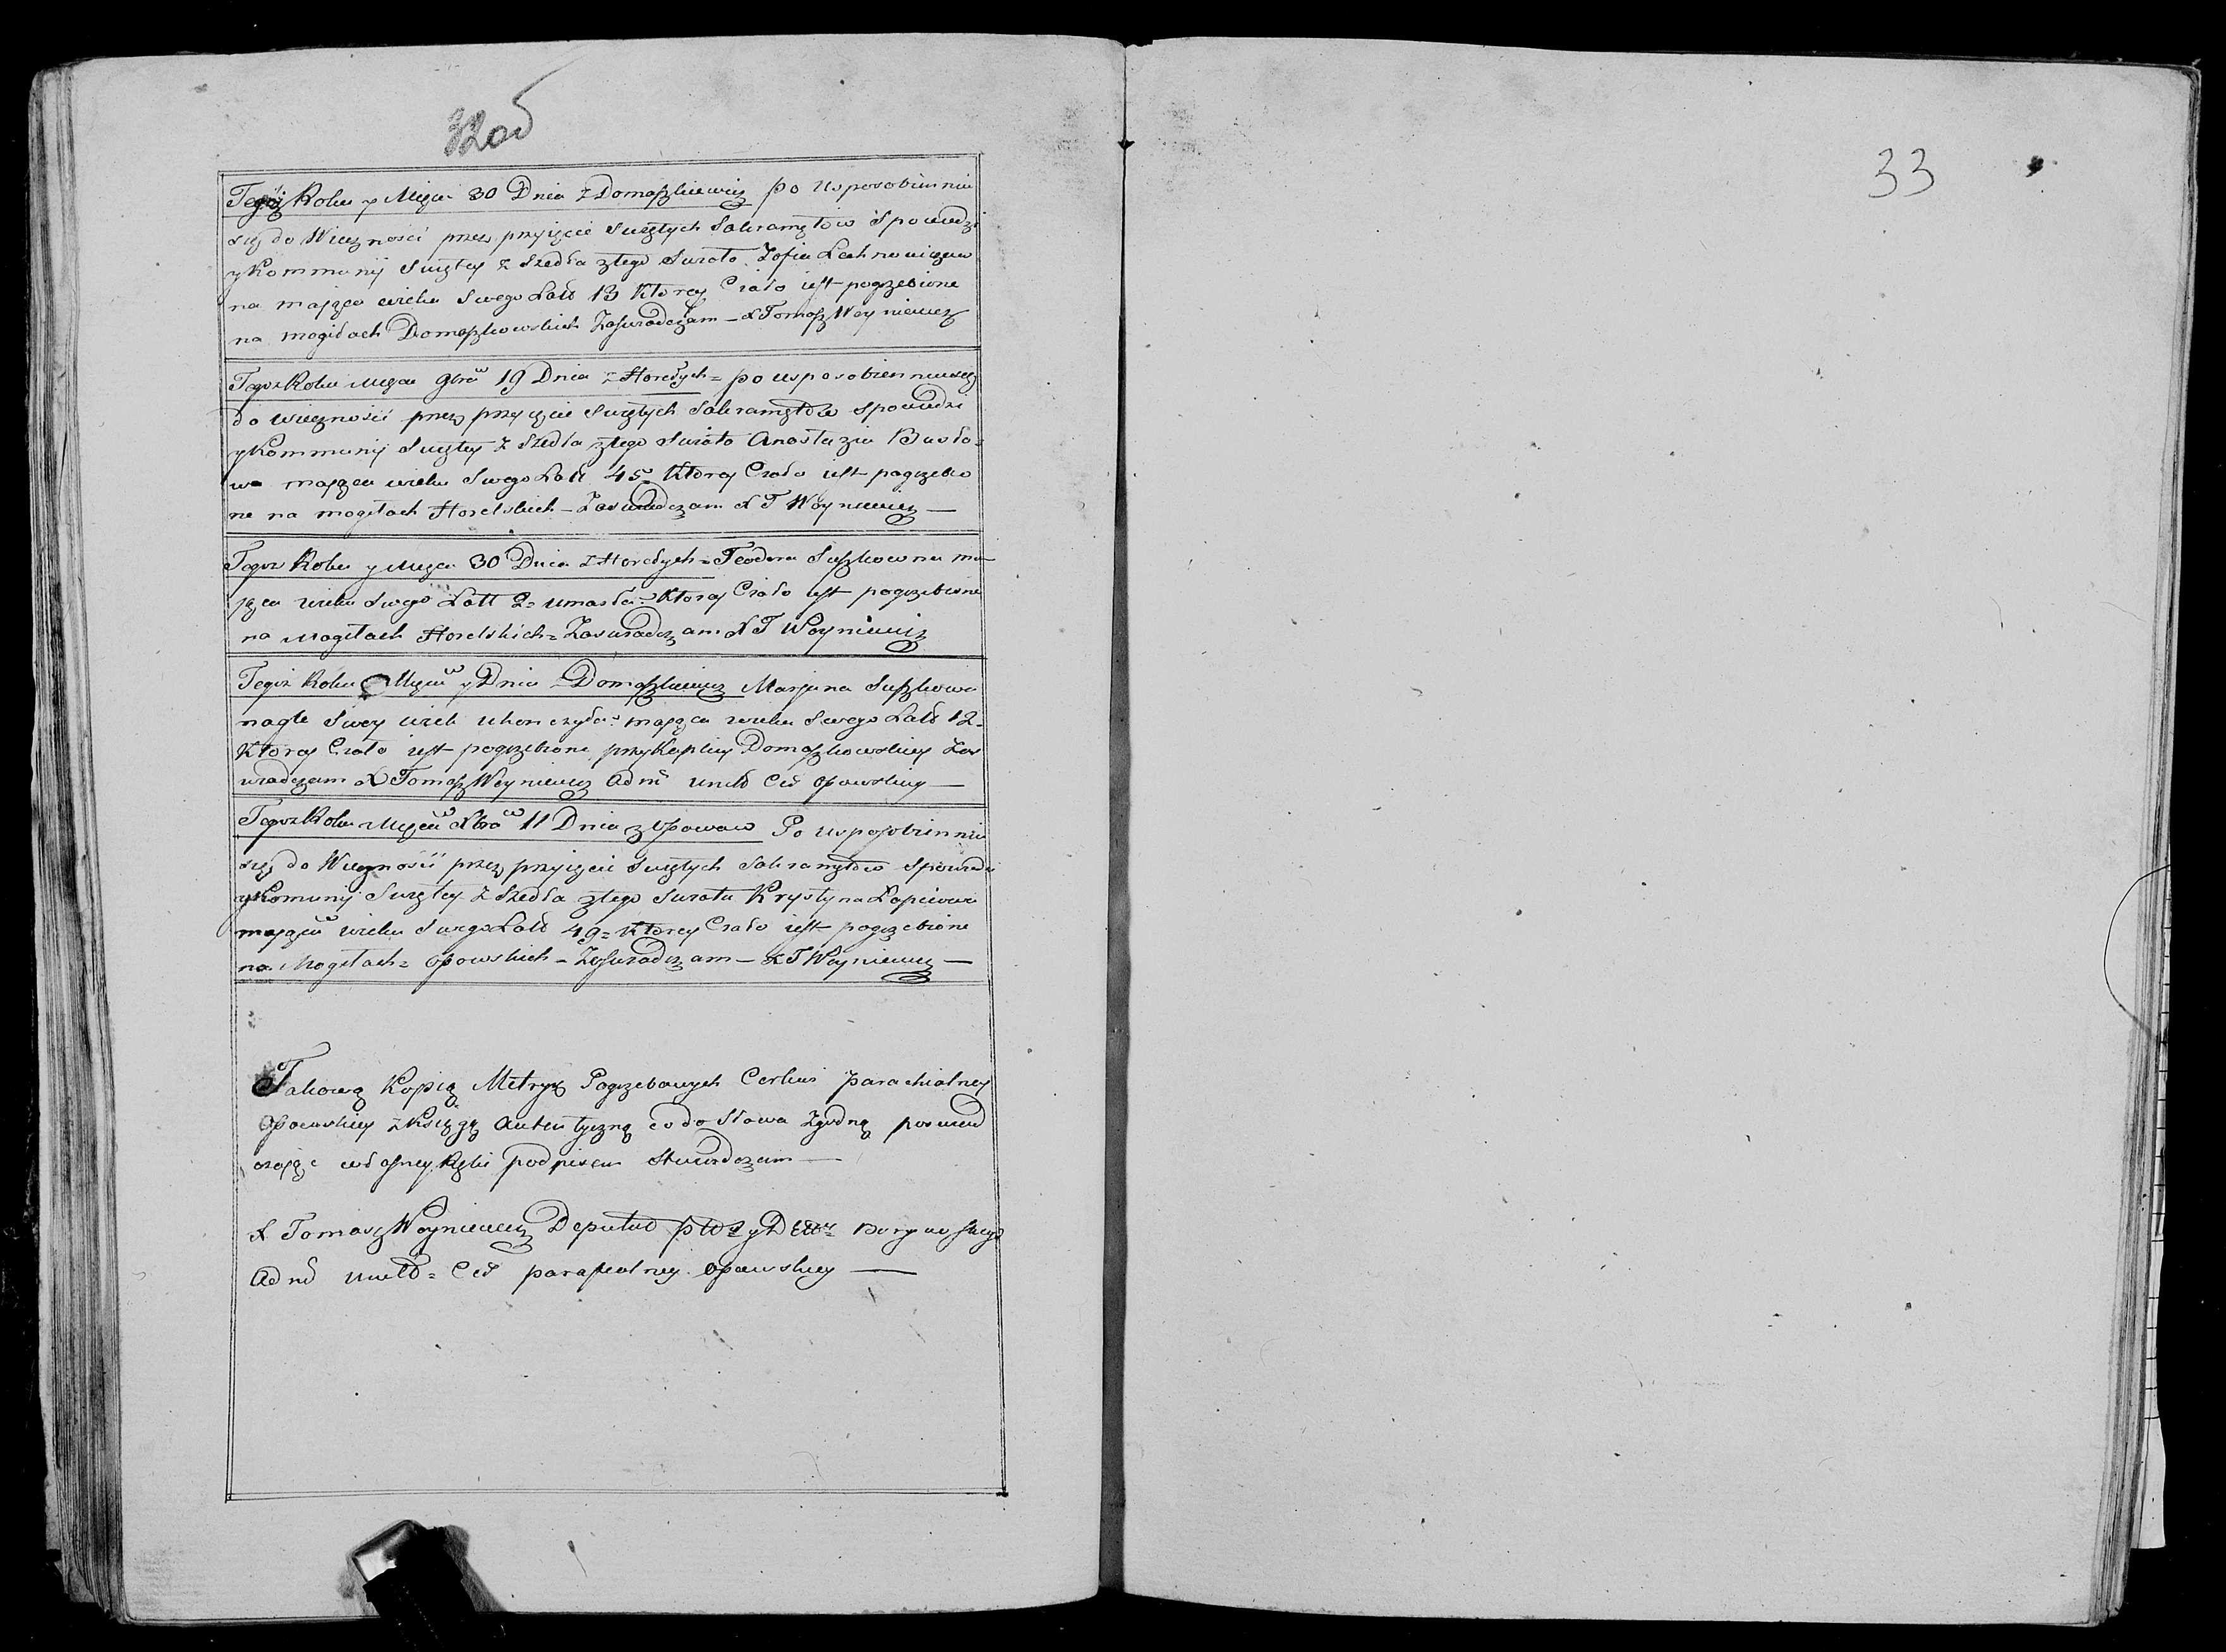 32об
33
Tegoż Roku y Mca 30 Dnia z Domaszkiewicz po usposobienniu
się do Wieczności przez przyięcie Swiętych Sakramętow Spowiedzi
y Kommunij Swiętey z Szedła z tego Swiata Zofia Lechnowiczow
na maiąca wieku Swego Latt 13 Ktorey Ciało iest pogrzebione
na mogiłach Domaszkowskich Zaswiadczam – X Tomasz Woyniewicz
Tegoż Roku Msca 9bra 19 Dnia z Horełych = po usposobienniu się
do wieczności przez przyięcie Swiętych Sakramętow spowiedzi
y Kommunij Swiętey z Szedła z tego Swiata Anastazia Busło=
wa maiąca wieku Swego Latt 45 = Ktorey Ciało iest pogrzebio
ne na mogiłach Horelskich – Zaswiadczam X T Woyniewicz —
Tegoż Roku y Msca 30 Dnia z Horełych = Teodora Suszkowna ma
iąca wieku Swego Latt 2 = umarła = Ktorey Ciało iest pogrzebione
na Mogiłach Horelskich = Zaswiadczam X T Woyniewicz
Tegoż Roku Msca y Dnia z Domaszkiewicz Marjana Suszkowa
nagle Swey wiek ukończyła = maiąca wieku Swego Latt 12 =
Ktorey Ciało iest pogrzebione przy Kaplicy Domaszkowskiey Zas
wiadczam X Tomasz Woyniewicz Adm Opowskiey —
Tegoż Roku Msca Xbra 11 Dnia z Opowa Po usposobienniu
się do Wieczności przez przyięcie Swiętych Sakramętow Spowiedzi
y Komunij Swiętey z Szedła z tego Swiata Krystyna Łapiowa
maiąca wieku Swego Latt 49 = Ktorey Ciało iest pogrzebione
na Mogiłach = Opowskich – Zaswiadczam – X T Woyniewicz —
Takową Kopią Metryk Pogrzebowych Cerkwi parachialney
Opowskiey z Księgą Autentyczną co do Słowa Zgodną poswiad
czaiąc własney Ręki podpisem Stwierdzam —
X Tomasz Woyniewicz Deputat
Adm parafialney Opowskiey —